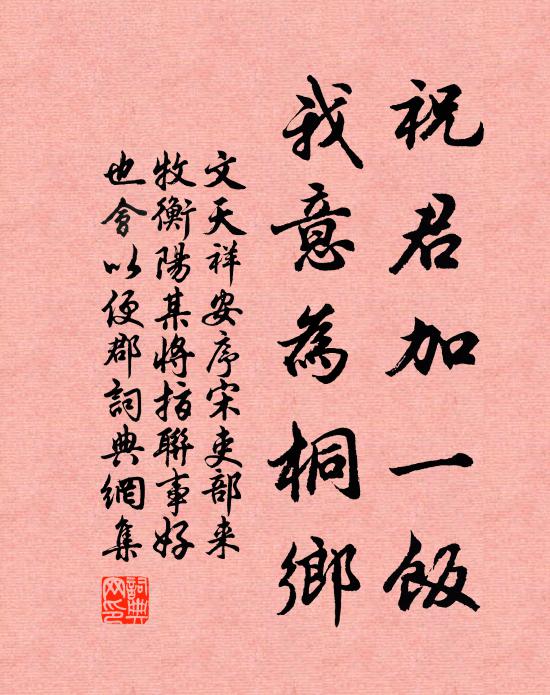 祝君加一飯
我意為桐鄉
文天祥安序宋吏部来
牧衡陽某将指聯事好
也會以便郡詞典網集
詞典网印